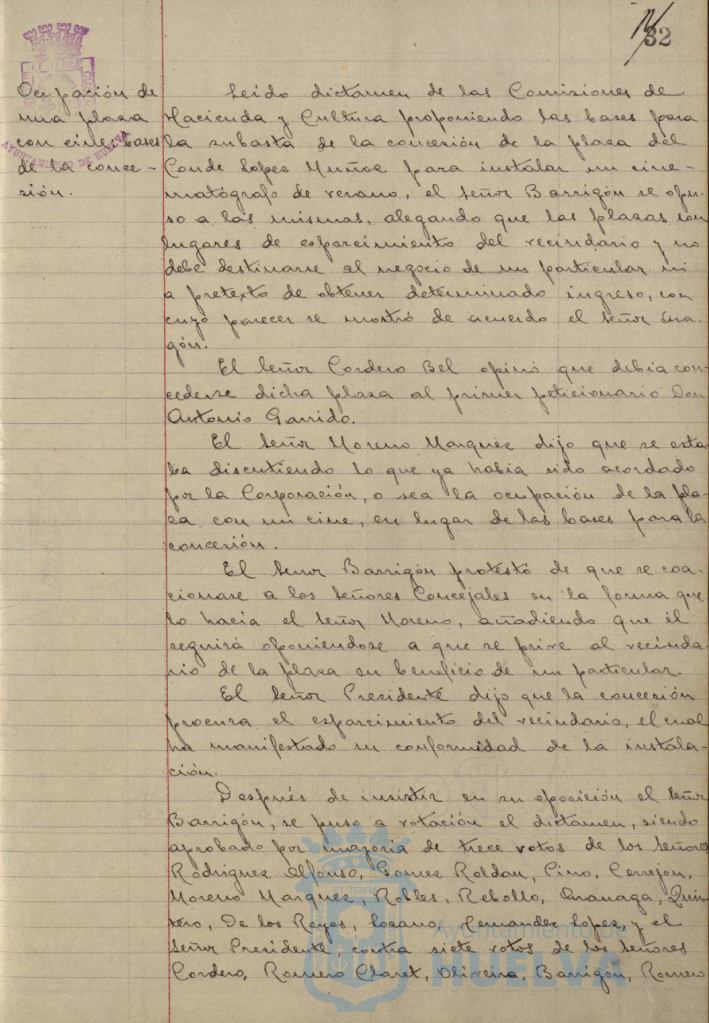 32
Ocupación de
una plaza
con cine: bases
de la conce-
sión.
AYUNTAMIENTO DE HUELVA
Leído dictamen de las Comisiones de
Hacienda y Cultura proponiendo las bases para
la subasta de la concesión de la plaza del
Conde López Muñoz para instalar un cine-
matógrafo de verano, el señor Barrigón se opu-
so a las mismas, alegando que las plazas son
lugares de esparcimiento del vecindario y no
debe destinarse al negocio de un particular ni
a pretexto de obtener determinado ingreso, con
cuyo parecer se mostró de acuerdo el señor
gón.
El Señor Cordero Bel opinó que debía con-
cederse dicha plaza al primer peticionario Don
Antonio Garrido.
El Señor Moreno Marquez dijo que se esta-
ba discutiendo lo que ya había sido acordado
por la Corporación, o sea la ocupación de la pla-
za con un cine, en lugar de las bases para la
concesión.
El Señor Barrigón protestó de que se coac-
cionase a los señores Concejales en la forma que
lo hacía el señor Moreno, añadiendo que él
seguirá oponiendose a que se prive al vecinda-
rio de la plaza en beneficio de un particular.
El Señor Presidente dijo que la concesión
procura el esparcimiento del vecindario, el cual
ha manifestado su conformidad de la instala-
ción.
Después de insistir en su oposición el señor
Barrigón, se puso a votación el dictamen, siendo
aprobado por mayoria de trece votos de los señores
Rodriguez Alfonso, Gomez Roldan, Pino, Cerrejon,
Moreno Marquez, Robles, Rebollo, Quin-
tero, De los Reyes, Lozano, Hernandez Lopez, y el
Señor Presidente, contra siete votos de los señores
Cordero, Romero Claret, Oliveira, Barrigón, Romero
Ayuntamiento de
HUELVA